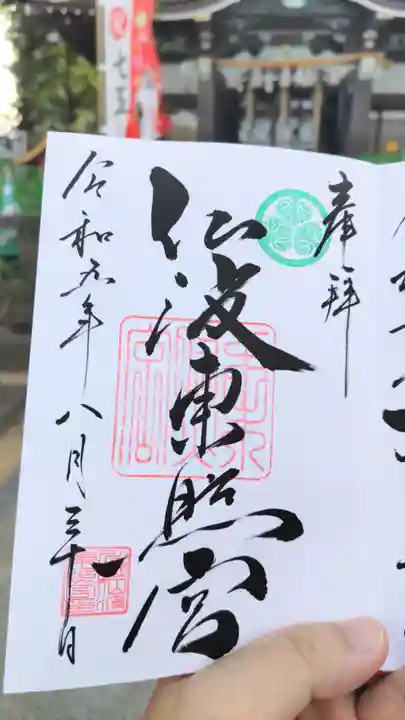 奉拝
仙波東照宮
令和五年八月三十一日
七五